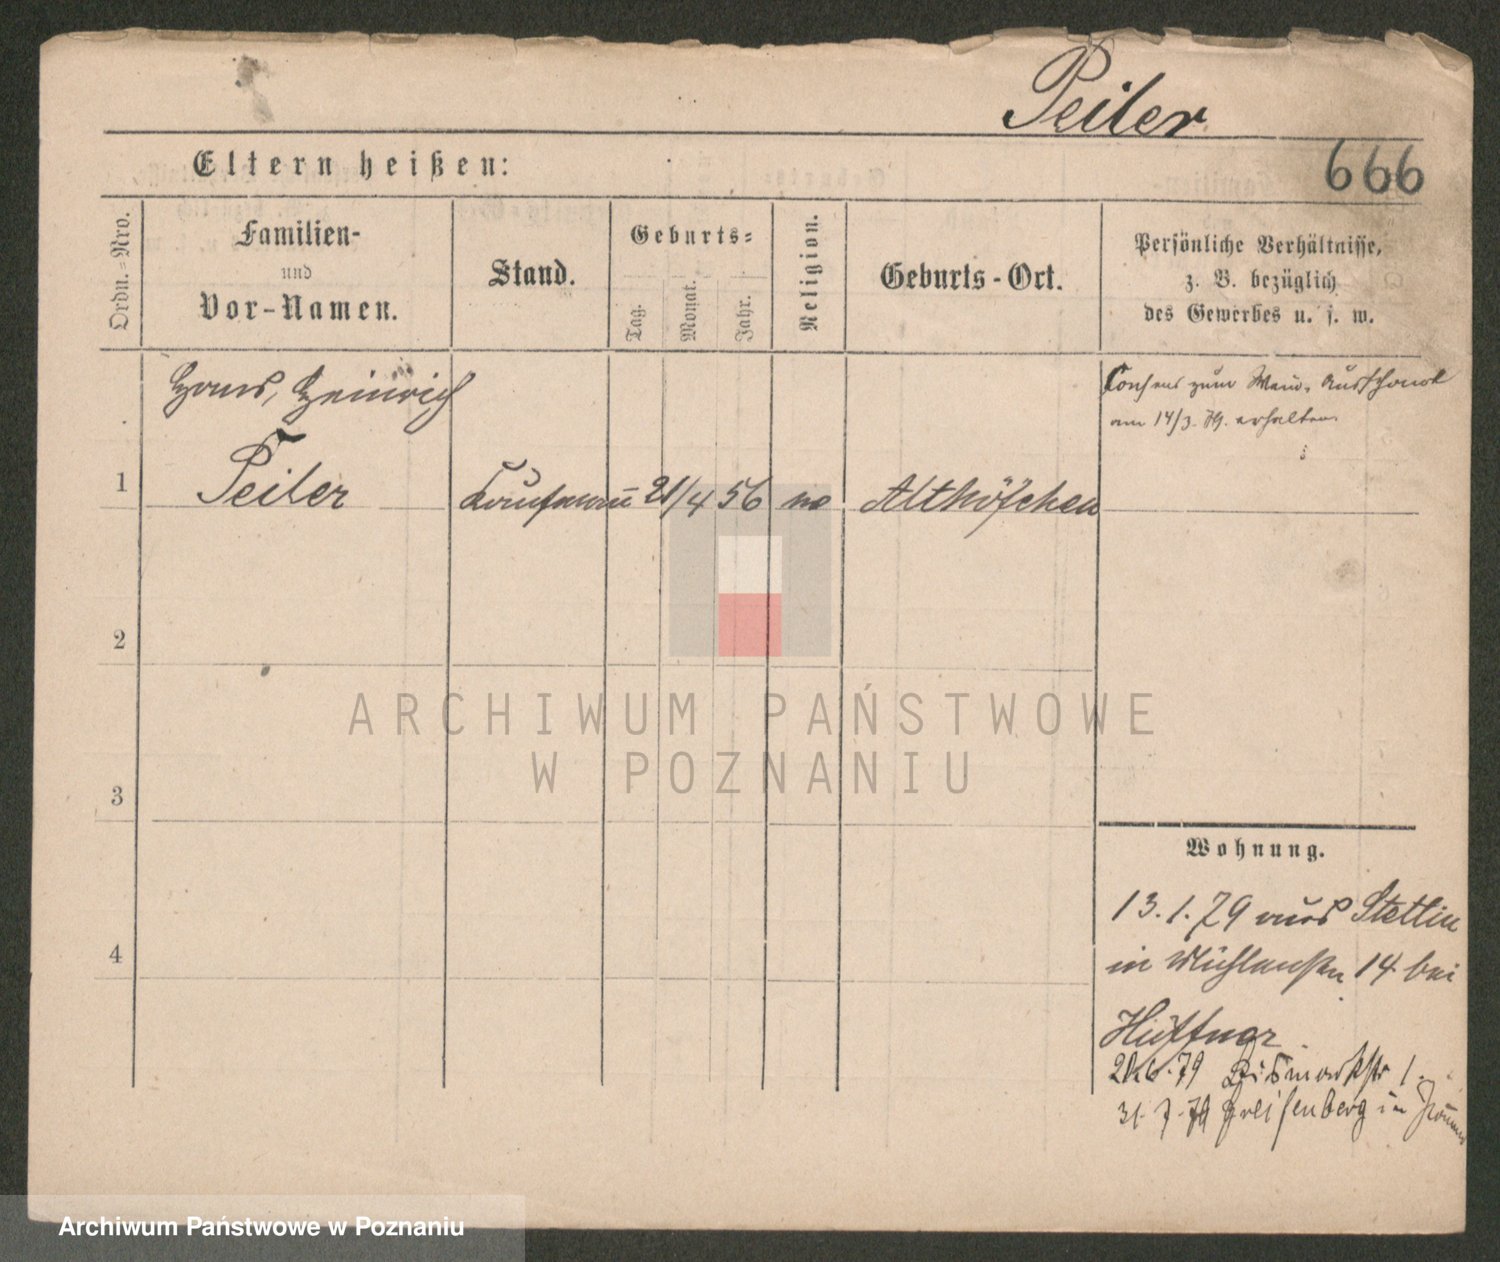 Peiler
Eltern heißen:
666
Ordn.=Nro.
Familien-
und
Vor-Namen.
Stand.
Geburts=
Tag.
Monat.
Jahr.
Religion.
Geburts-Ort.
Persönliche Verhältnisse,
z. B. bezüglich
des Gewerbes u. s. w.
Hans, Heinrich
Consens zum Wein-Ausschank
am 14/3. 79. erhalten.
1 Peiler Kaufmann 21/4 56 Althöfchen
2
3
4
Wohnung.
13.1.79 aus Stettin
in Mühlenstr 14 bei
Hüffner
20.6.79 Bismarkstr 1.
31.7.79 Greifenberg in Pomm
ARCHIWUM PAŃSTWOWE
W POZNANIU
Archiwum Państwowe w Poznaniu